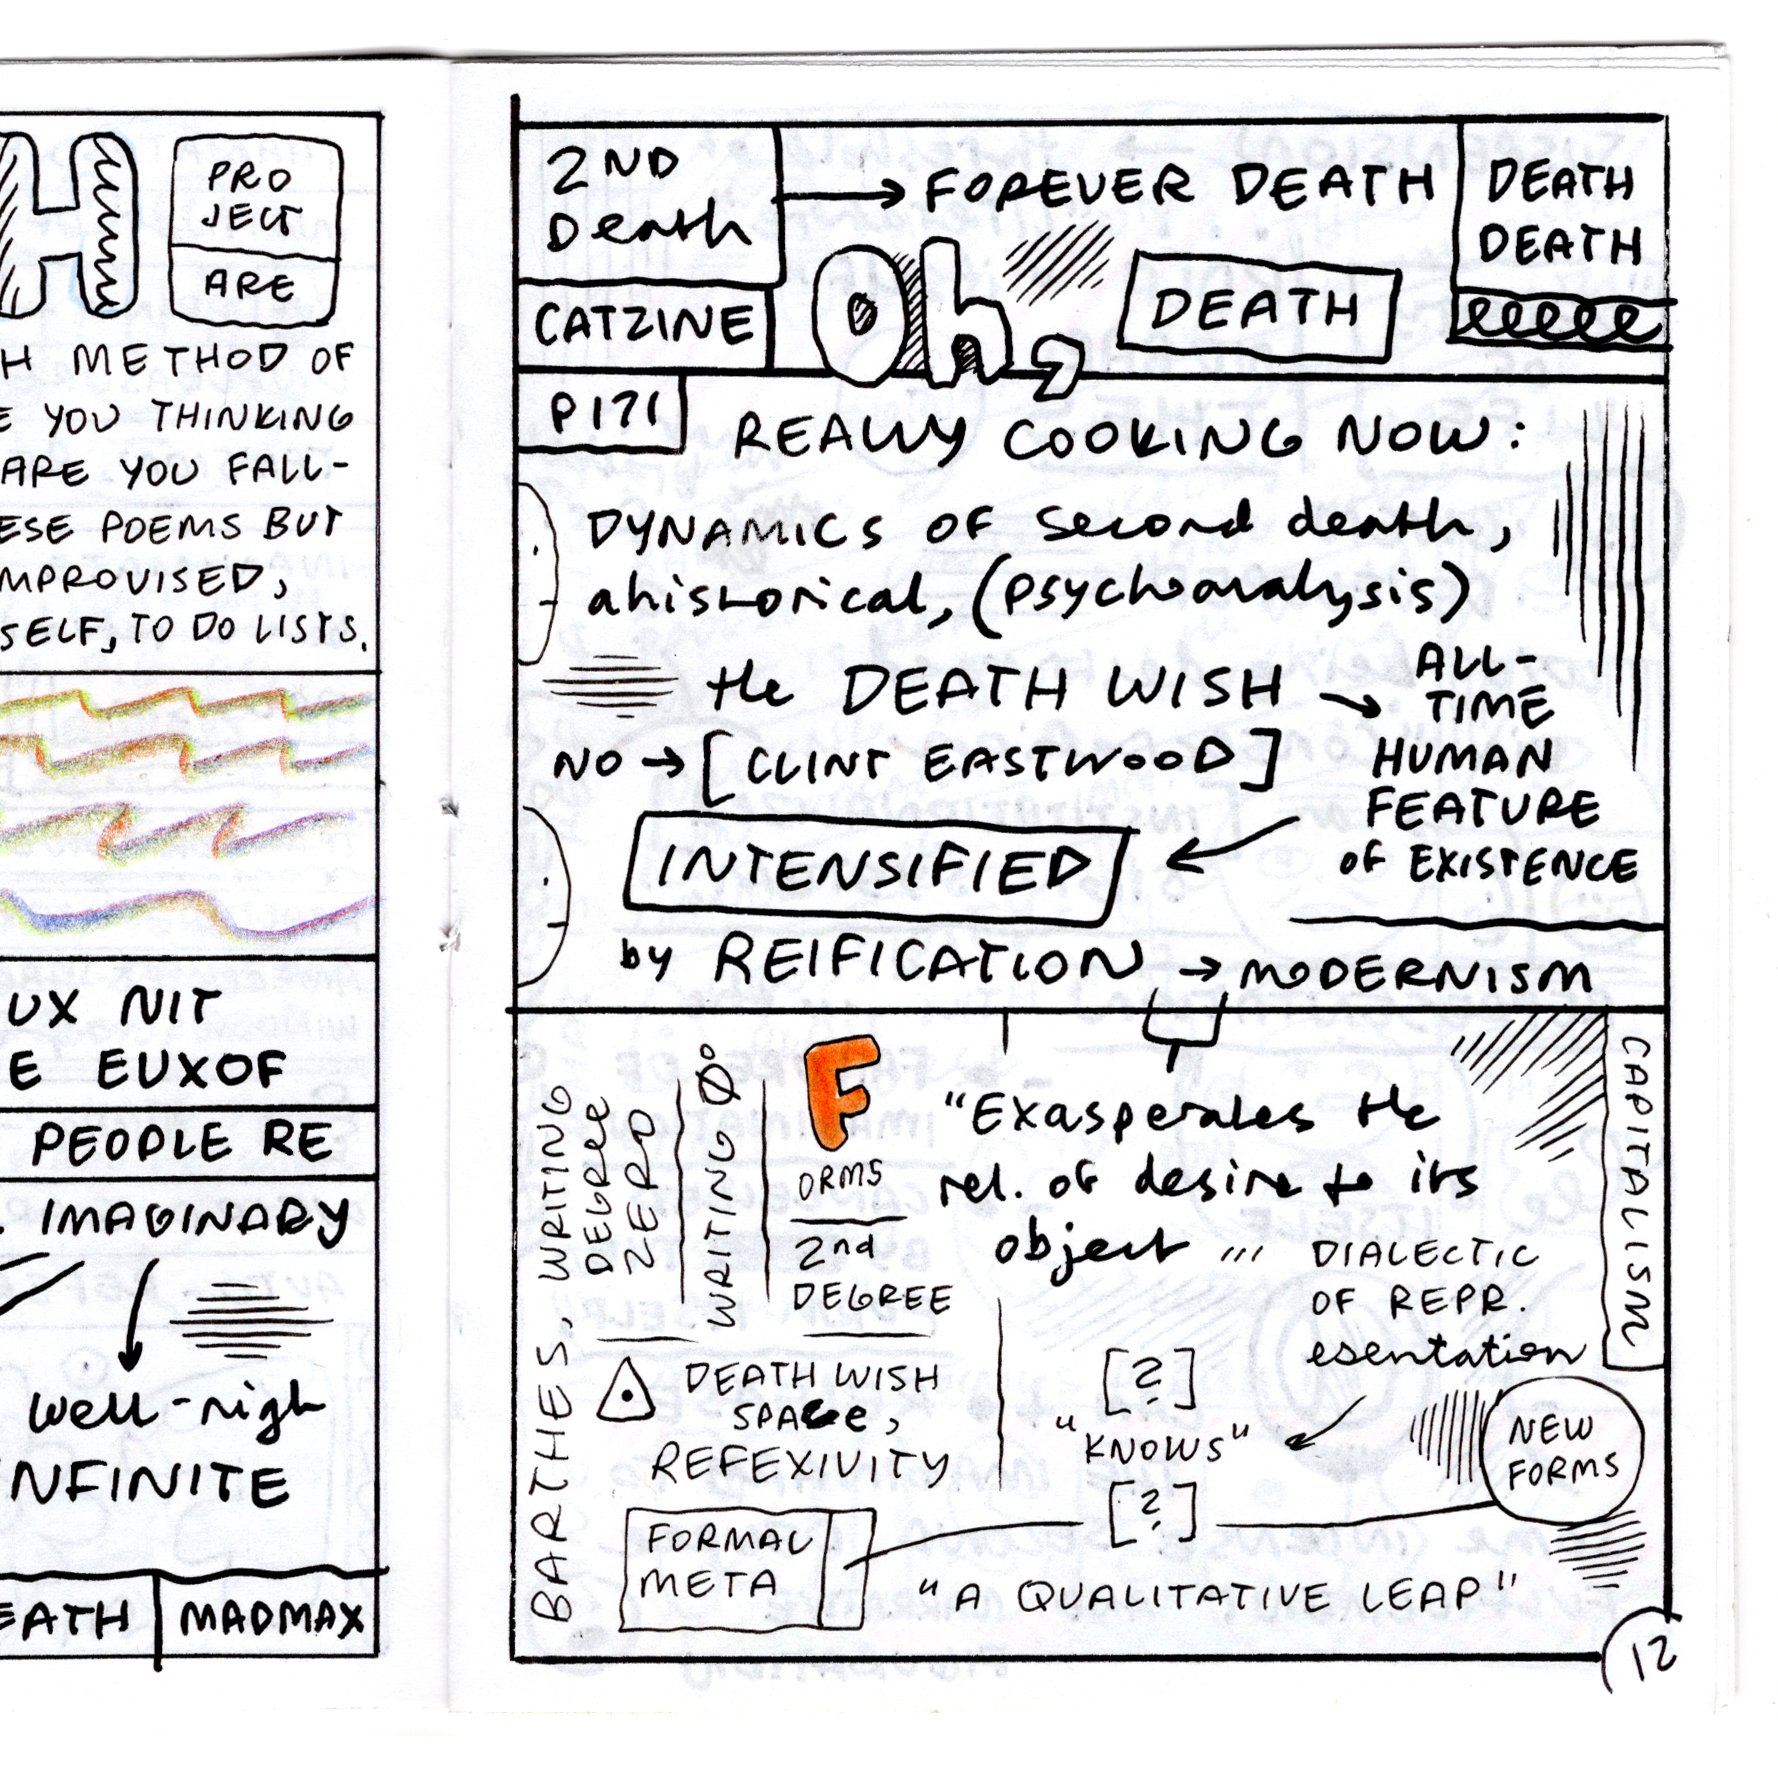 H
PRO
JECT
ARE
H METHOD OF
E YOU THINKING
ARE YOU FALL-
ESE POEMS BUT
MPROVISED,
SELF, TO DO LISTS.
UX NIT
E EUXOF
PEOPLE RE
. IMAGINARY
well-nigh
NFINITE
EATH
MADMAX
2ND
Death
→ FOREVER DEATH
DEATH
DEATH
CATZINE
Oh,
DEATH
P171
REALLY COOKING NOW:
DYNAMICS OF second death,
ahistorical, (psychoanalysis)
the DEATH WISH →
ALL-
TIME
HUMAN
FEATURE
OF EXISTENCE
NO → [CLINT EASTWOOD]
INTENSIFIED
by REIFICATION → MODERNISM
BARTHES, WRITING
DEGREE
ZERO
WRITING Ø°
F
ORMS
2nd
DEGREE
"Exasperates the
rel. of desire to its
object ...
DIALECTIC
OF REPR.
esentation
CAPITALISM
DEATH WISH
SPACE,
REFEXIVITY
[?]
"KNOWS"
[?]
NEW
FORMS
FORMAL
META
"A QUALITATIVE LEAP"
12